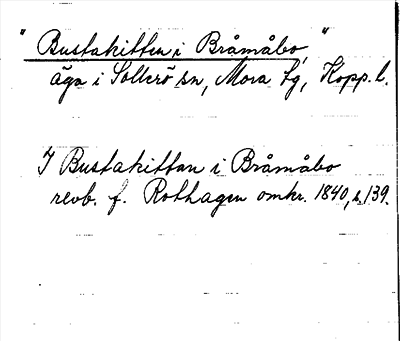 "Bustakitten i Bråmåbo,"
äga i Sollerö sn, Mora tg, Kopp. l.
I Bustakittan i Bråmåbo
revb. f. Rothagen omkr. 1840, s. 139.